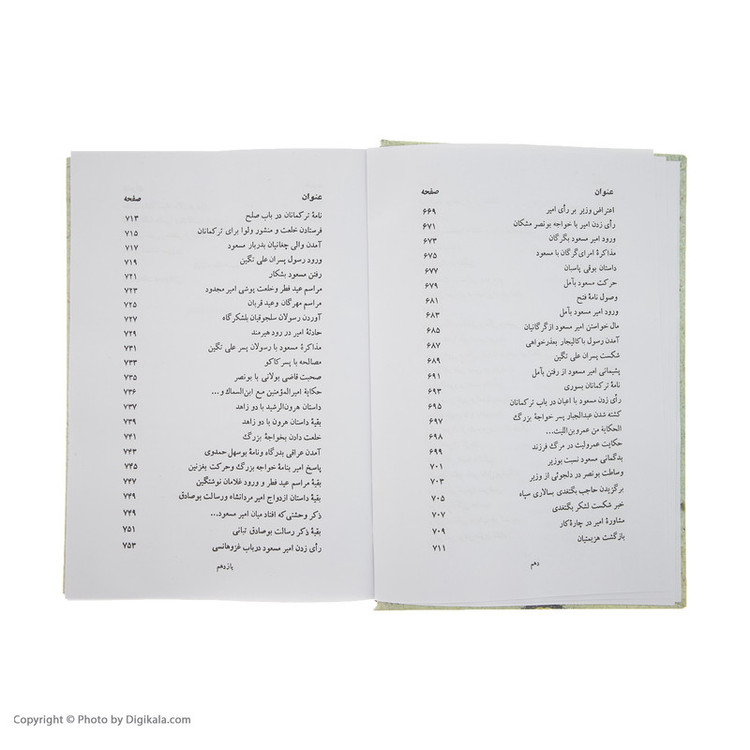 عنوان صفحه
اعتراض وزیر بر رأی امیر ۶۶۹
رأی زدن امیر با خواجه بونصر مشکان ۶۷۱
ورود امیر مسعود بگرگان ۶۷۳
مذاکرهٔ امرای گرگان با مسعود ۶۷۵
داستان بوقی پاسبان ۶۷۷
حرکت مسعود بآمل ۶۷۹
وصول نامهٔ فتح ۶۸۱
ورود امیر مسعود بآمل ۶۸۳
مال خواستن امیر مسعود از گرگانیان ۶۸۵
آمدن رسول باکالیجار بعذرخواهی ۶۸۷
شکست پسران علی تگین ۶۸۹
پشیمانی امیر مسعود از رفتن بآمل ۶۹۱
نامهٔ ترکمانان بسوری ۶۹۳
رأی زدن مسعود با اعیان در باب ترکمانان ۶۹۵
کشته شدن عبدالجبار پسر خواجهٔ بزرگ ۶۹۷
الحکایة من عمروبن اللیث... ۶۹۸
حکایت عمرولیث در مرگ فرزند ۶۹۹
بدگمانی مسعود نسبت بوزیر ۷۰۱
وساطت بونصر در دلجوئی از وزیر ۷۰۳
برگزیدن حاجب بگتغدی بسالاری سپاه ۷۰۵
خبر شکست لشکر بگتغدی ۷۰۷
مشاورهٔ امیر در چارهٔ کار ۷۰۹
بازگشت هزیمتیان ۷۱۱
دهم
عنوان صفحه
نامهٔ ترکمانان در باب صلح ۷۱۳
فرستادن خلعت و منشور ولوا برای ترکمانان ۷۱۵
آمدن والی چغانیان بدربار مسعود ۷۱۷
ورود رسول پسران علی تگین ۷۱۹
رفتن مسعود بشکار ۷۲۱
مراسم عید فطر و خلعت پوشی امیر مجدود ۷۲۳
مراسم مهرگان و عید قربان ۷۲۵
آوردن رسولان سلجوقیان بلشکرگاه ۷۲۷
حادثهٔ امیر در رود هیرمند ۷۲۹
مذاکرهٔ مسعود با رسولان پسر علی تگین ۷۳۱
مصالحه با پسر کاکو ۷۳۳
صحبت قاضی بولانی با بونصر ۷۳۵
حکایة امیرالمؤمنین مع ابن السماک و... ۷۳۶
داستان هرون الرشید با دو زاهد ۷۳۷
بقیهٔ داستان هرون با دو زاهد ۷۳۹
خلعت دادن بخواجهٔ بزرگ ۷۴۱
آمدن عراقی بدرگاه و نامهٔ بوسهل حمدوی ۷۴۳
پاسخ امیر بنامهٔ خواجه بزرگ و حرکت بغزنین ۷۴۵
بقیهٔ مراسم عید فطر و ورود غلامان نوشتگین ۷۴۷
بقیهٔ داستان ازدواج امیر مردانشاه و رسالت بوصادق ۷۴۹
ذکر وحشتی که افتاد میان امیر مسعود... ۷۴۹
بقیهٔ ذکر رسالت بوصادق تبانی ۷۵۱
رأی زدن امیر مسعود درباب غزوهانسی ۷۵۳
یازدهم
Copyright © Photo by Digikala.com